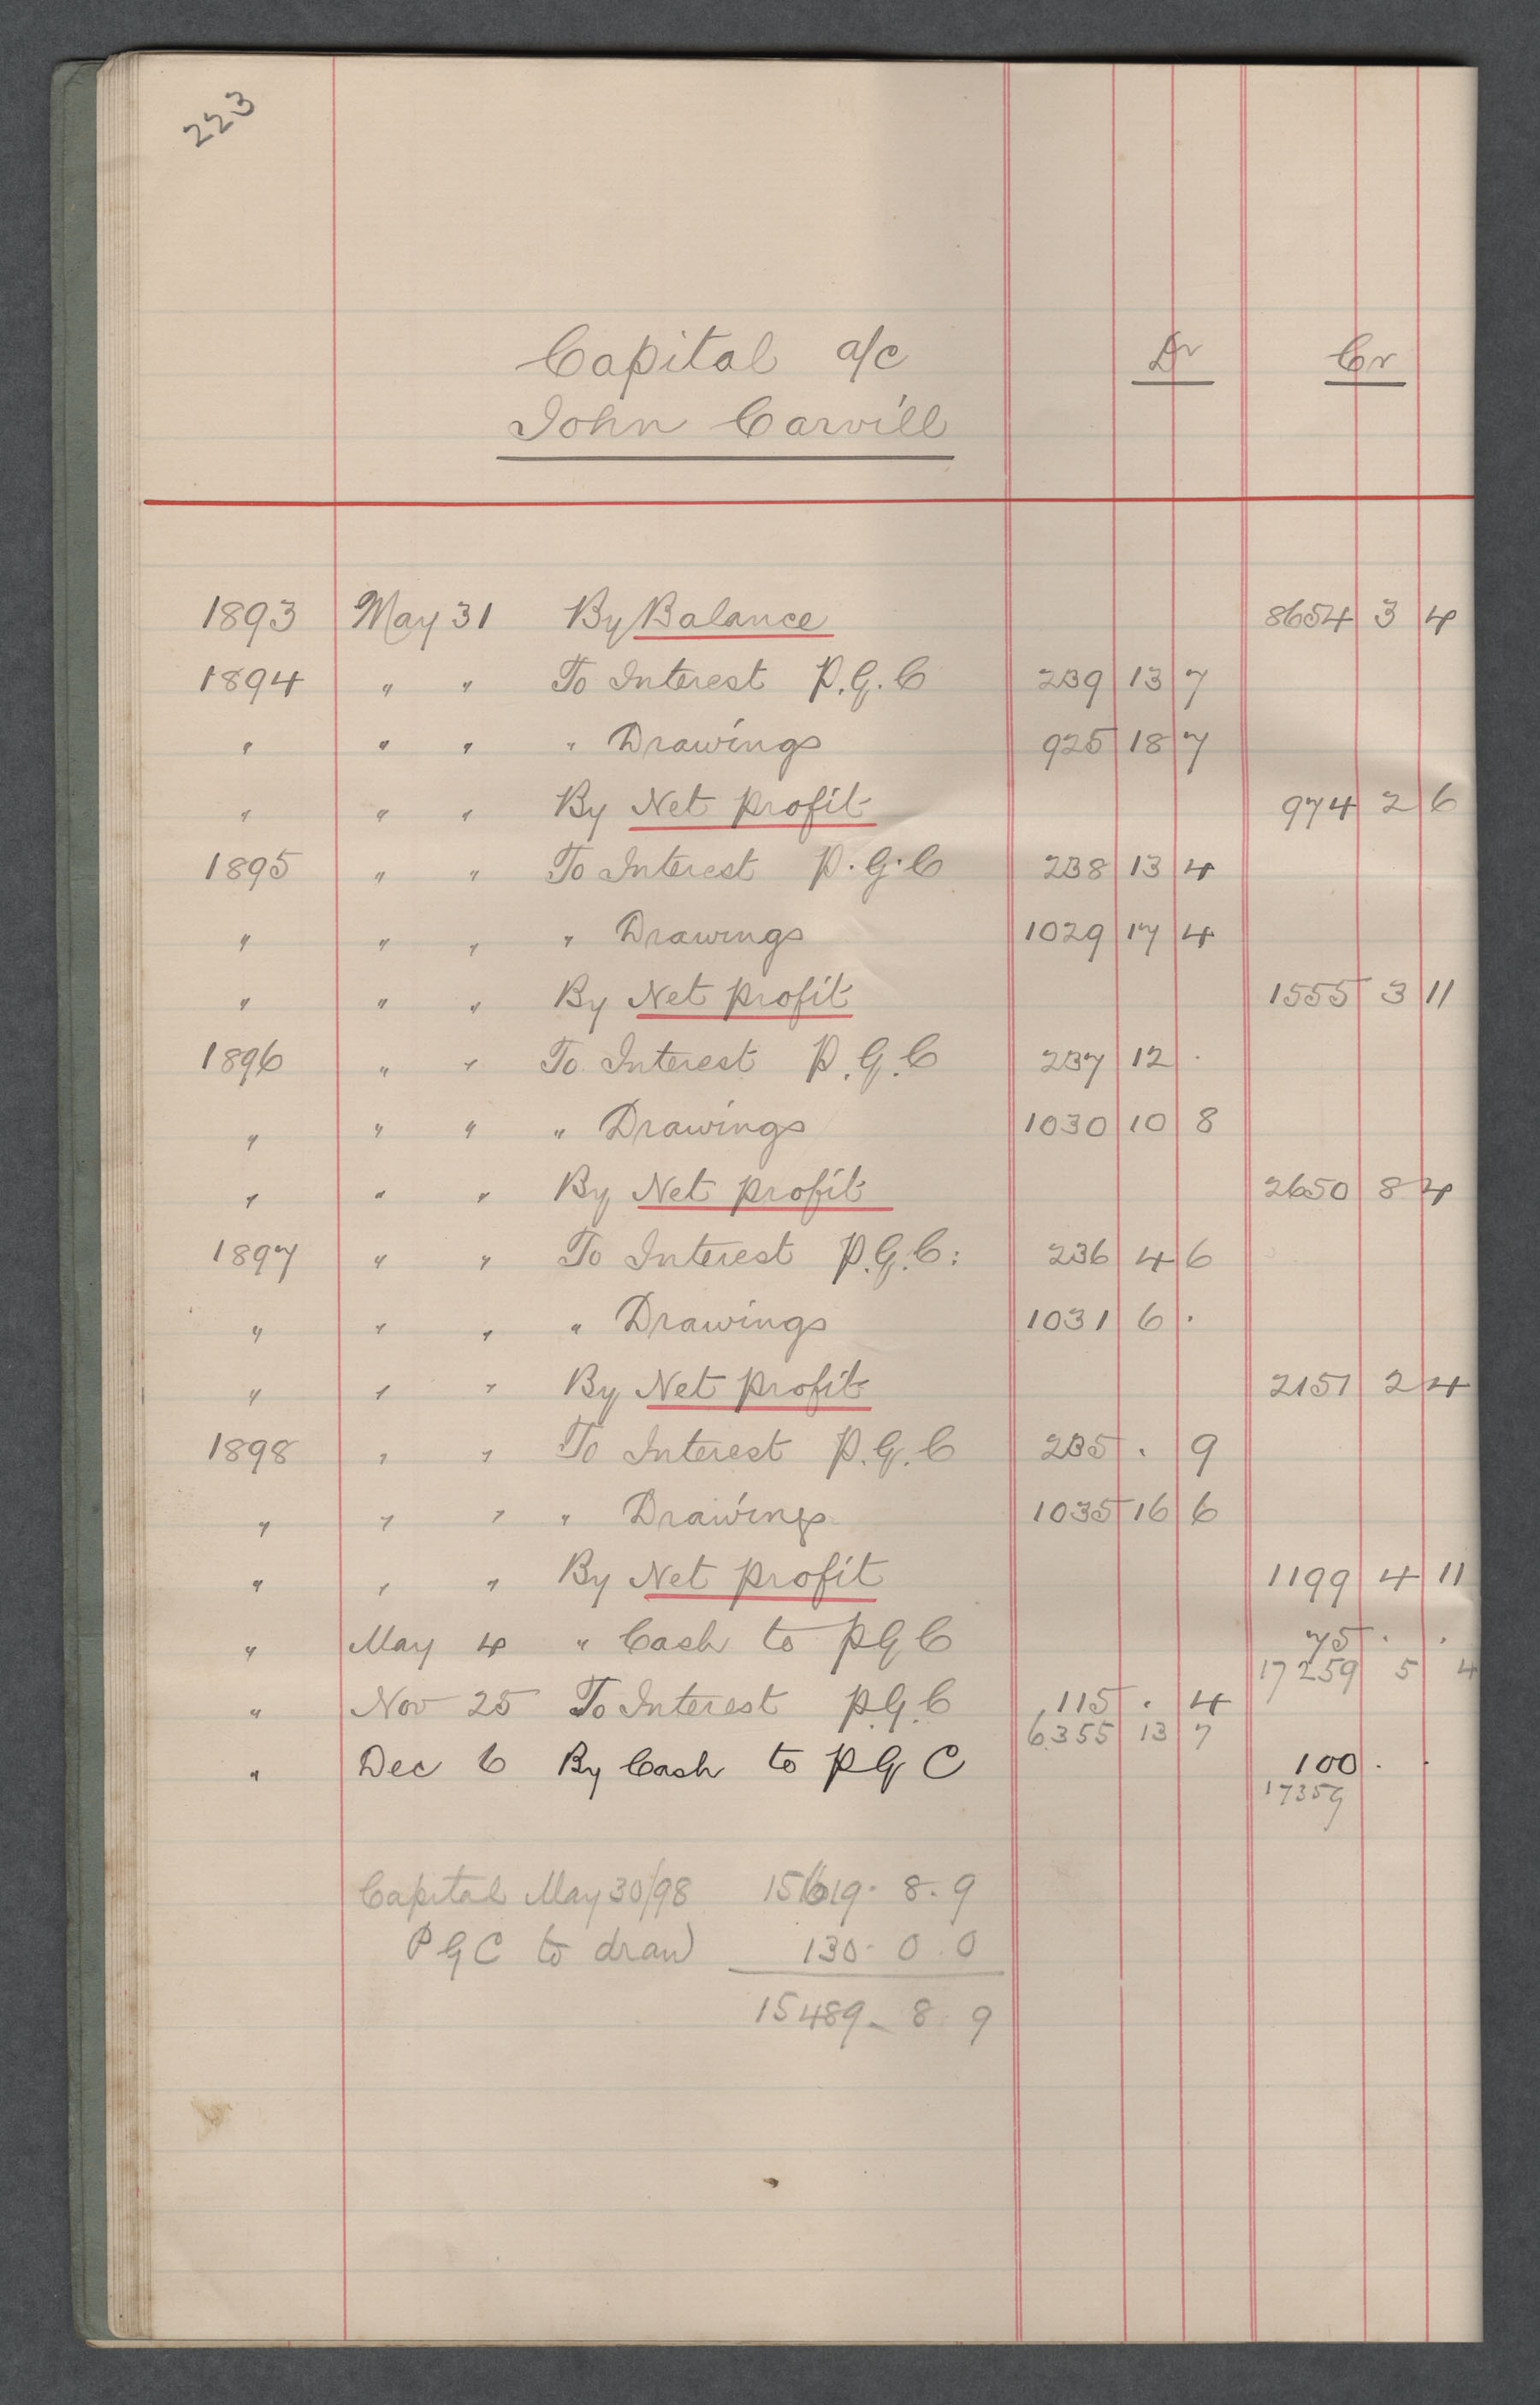 223
Capital a/c Dr Cr
John Carvill
1893 May 31 By Balance 8654 3 4
1894 " " To Interest P.G.C 239 13 7
" " " " Drawings 925 18 7
" " " By Net profit 974 2 6
1895 " " To Interest P.G.C 238 13 4
" " " " Drawings 1029 17 4
" " " By Net profit 1555 3 11
1896 " " To Interest P.G.C 237 12 .
" " " " Drawings 1030 10 8
" " " By Net profit 2650 8 4
1897 " " To Interest P.G.C: 236 4 6
" " " " Drawings 1031 6 .
" " " By Net profit 2151 2 4
1898 " " To Interest P.G.C 235 . 9
" " " " Drawings 1035 16 6
" " " By Net profit 1199 4 11
" May 4 " Cash to PGC 75 . .
17259 5 4
" Nov 25 To Interest P.G.C 115 . 4
6355 13 7
" Dec 6 By Cash to PGC 100 . .
17359
Capital May 30/98 15619. 8. 9
PGC to draw 130. 0. 0
15489 - 8. 9